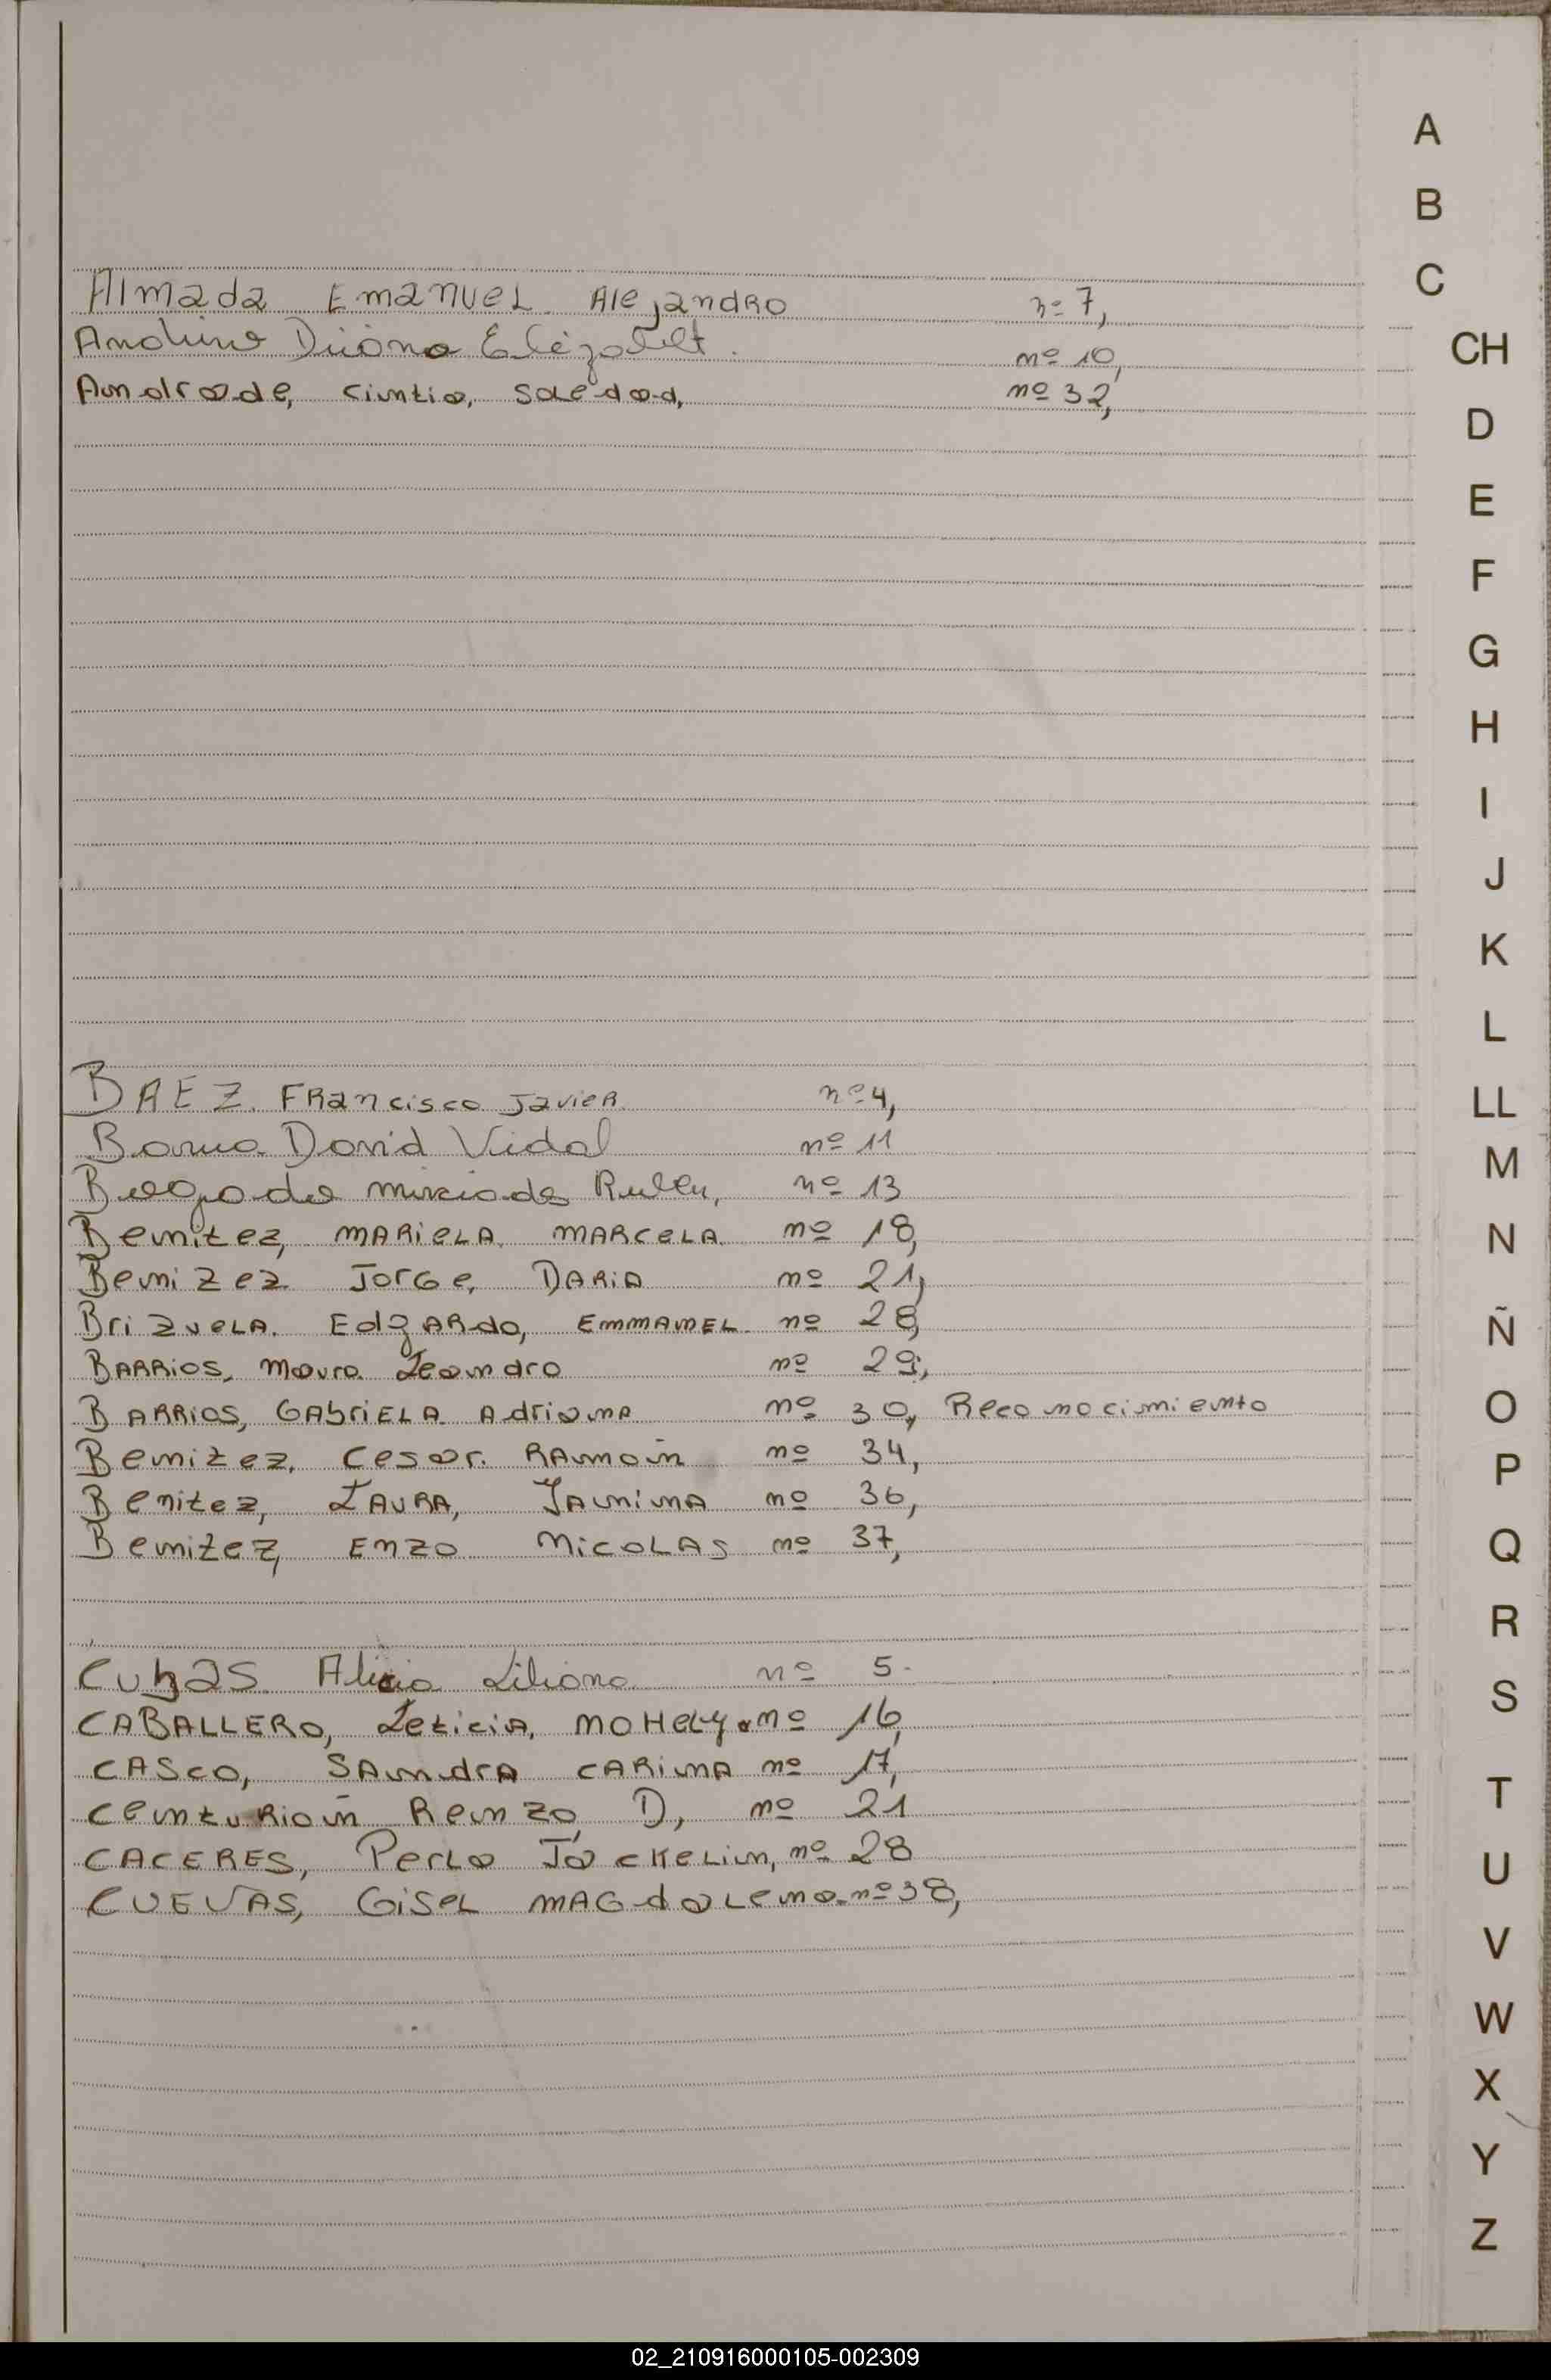 A
B
C
CH
D
E
F
G
H
I
J
K
L
LL
M
N
Ñ
O
P
Q
R
S
T
U
V
W
X
Y
Z
Almada Emanuel Alejandro nº 7,
Andino Diiana Elizabet. nº 10,
Andrade, cintia, Soledad, nº 32,
BAEZ. Francisco Javier. nº 4,
David Vidal nº 11
Ruben, nº 13
Benitez, MARIELA MARCELA nº 18,
Benizez Jorge, DARIO nº 21,
BrizuELA. EdgARdo, EMMANEL nº 28,
BARRIOS, Mauro Leandro nº 29,
BARRIOS, GAbriELA Adriana nº 30, Reconocimiento
Benitez, Cesar. RAmón nº 34,
Benitez, LAURA, YAninA nº 36,
Benitez, ENZO NICOLAS nº 37,
Cubas Alicia Liliana nº 5.
CABALLERO, LeticiA, nº 16,
CASCO, SAndrA CARINA nº 17,
Centurión Renzo, D, nº 21
CACERES, Perla Jackelin, nº 28
CUEVAS, GiSeL MAGdaLena nº 38,
02_210916000105-002309